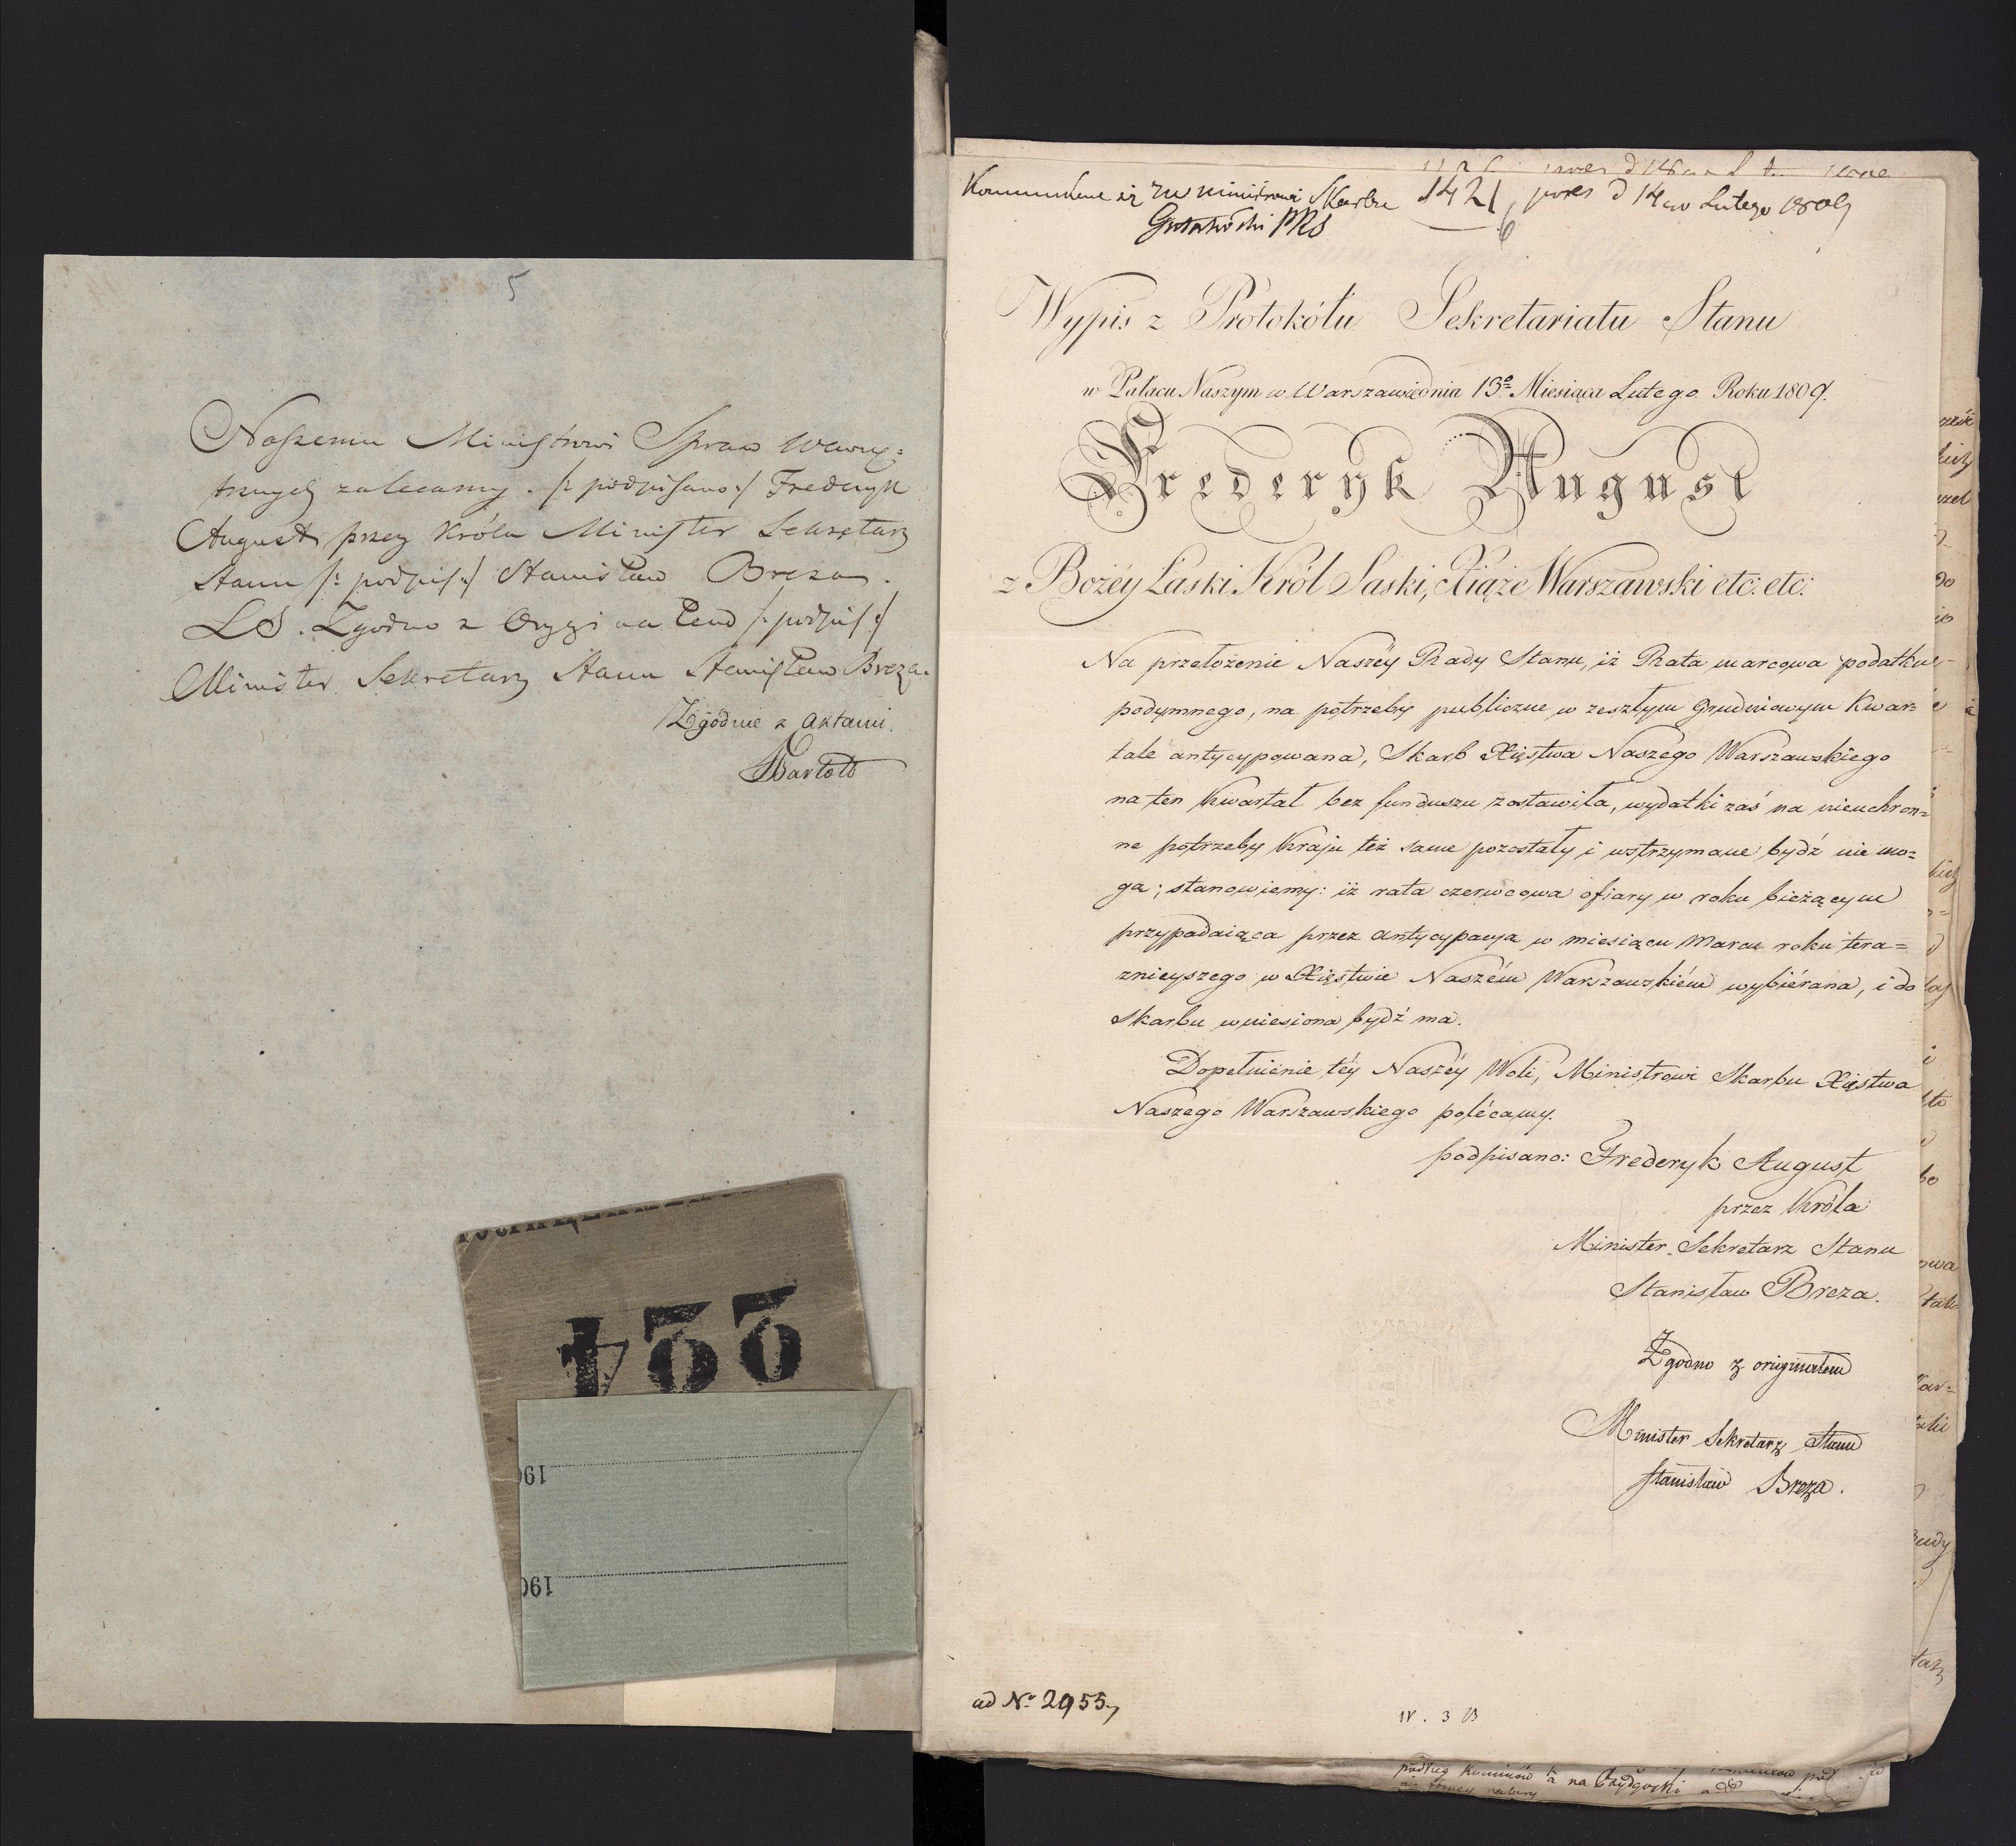 5
Naszemu Ministrowi Spraw Wewnę=
trznych zalecamy. /: podpisano :/ Frederyk
August przez Króla Minister Sekretarz
Stanu /: podpis :/ Stanisław Breza.
LS. Zgodno z Oryginałem /: podpis :/
Minister Sekretarz Stanu Stanisław Breza.
Zgodnie z Aktami.
Bartold
224
190
190
ministrowi Skarbu 1421, pres d 14go Lutego 1809
Gutakowski PRS
6
Wypis z Protokółu Sekretariatu Stanu
w Pałacu Naszym w Warszawie dnia 13º Miesiąca Lutego Roku 1809.
Frederyk August
z Bożéy Łaski Król Saski, Xiąże Warszawski etc: etc:
Na przełożenie Naszéy Rady Stanu, iż Rata marcowa podatku
podymnego, na potrzeby publiczne w zeszłym Grudniowym Kwar=
tale antycypowana, Skarb Xięstwa Naszego Warszawskiego
na ten Kwartał bez funduszu zostawiła, wydatki zaś na nieuchron=
ne potrzeby Kraju też same pozostały i wstrzymane bydź nie mo=
ga; stanowiemy: iż rata czerwcowa ofiary w roku bieżącym
przypadaiąca przez antycypacyą w miesiącu Marcu roku tera=
znieyszego w Xięstwie Naszém Warszawskiém wybiérana, i do
Skarbu wniesiona bydź ma.
Dopełnienie téy Naszéy Woli, Ministrowi Skarbu Xięstwa
Naszego Warszawskiego polécamy.
podpisano: Frederyk August
przez Króla
Minister Sekretarz Stanu
Stanisław Breza.
Zgodno z originałem
Minister Sekretarz Stanu
Stanisław Breza.
ad Nº 2955
IV. 3 B
podług Kominów a na Bydgoski